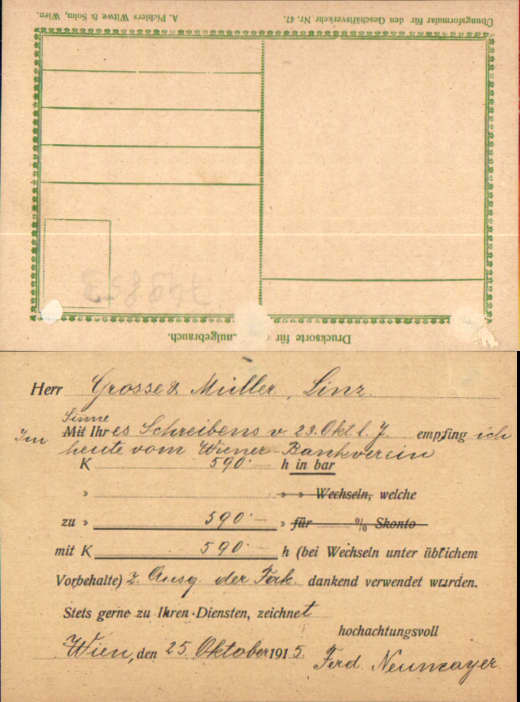 Übungsformular für den Geschäftsverkehr Nr. 47. A. Pichlers Witwe & Sohn, Wien.
Drucksorte für Schulgebrauch.
Herr Grosse & Müller, Linz.
Sinne
Im Mit Ihres Schreibens v. 23. Okt. l. J. empfing ich
heute vom Wiener Bankverein
K 590·— h in bar
» » » Wechseln, welche
zu » 590·— » für % Skonto
mit K 590·— h (bei Wechseln unter üblichem
Vorbehalte) z. Ausg. der Fakt. dankend verwendet wurden.
Stets gerne zu Ihren Diensten, zeichnet
hochachtungsvoll
Wien, den 25. Oktober 1915. Ferd. Neumayer